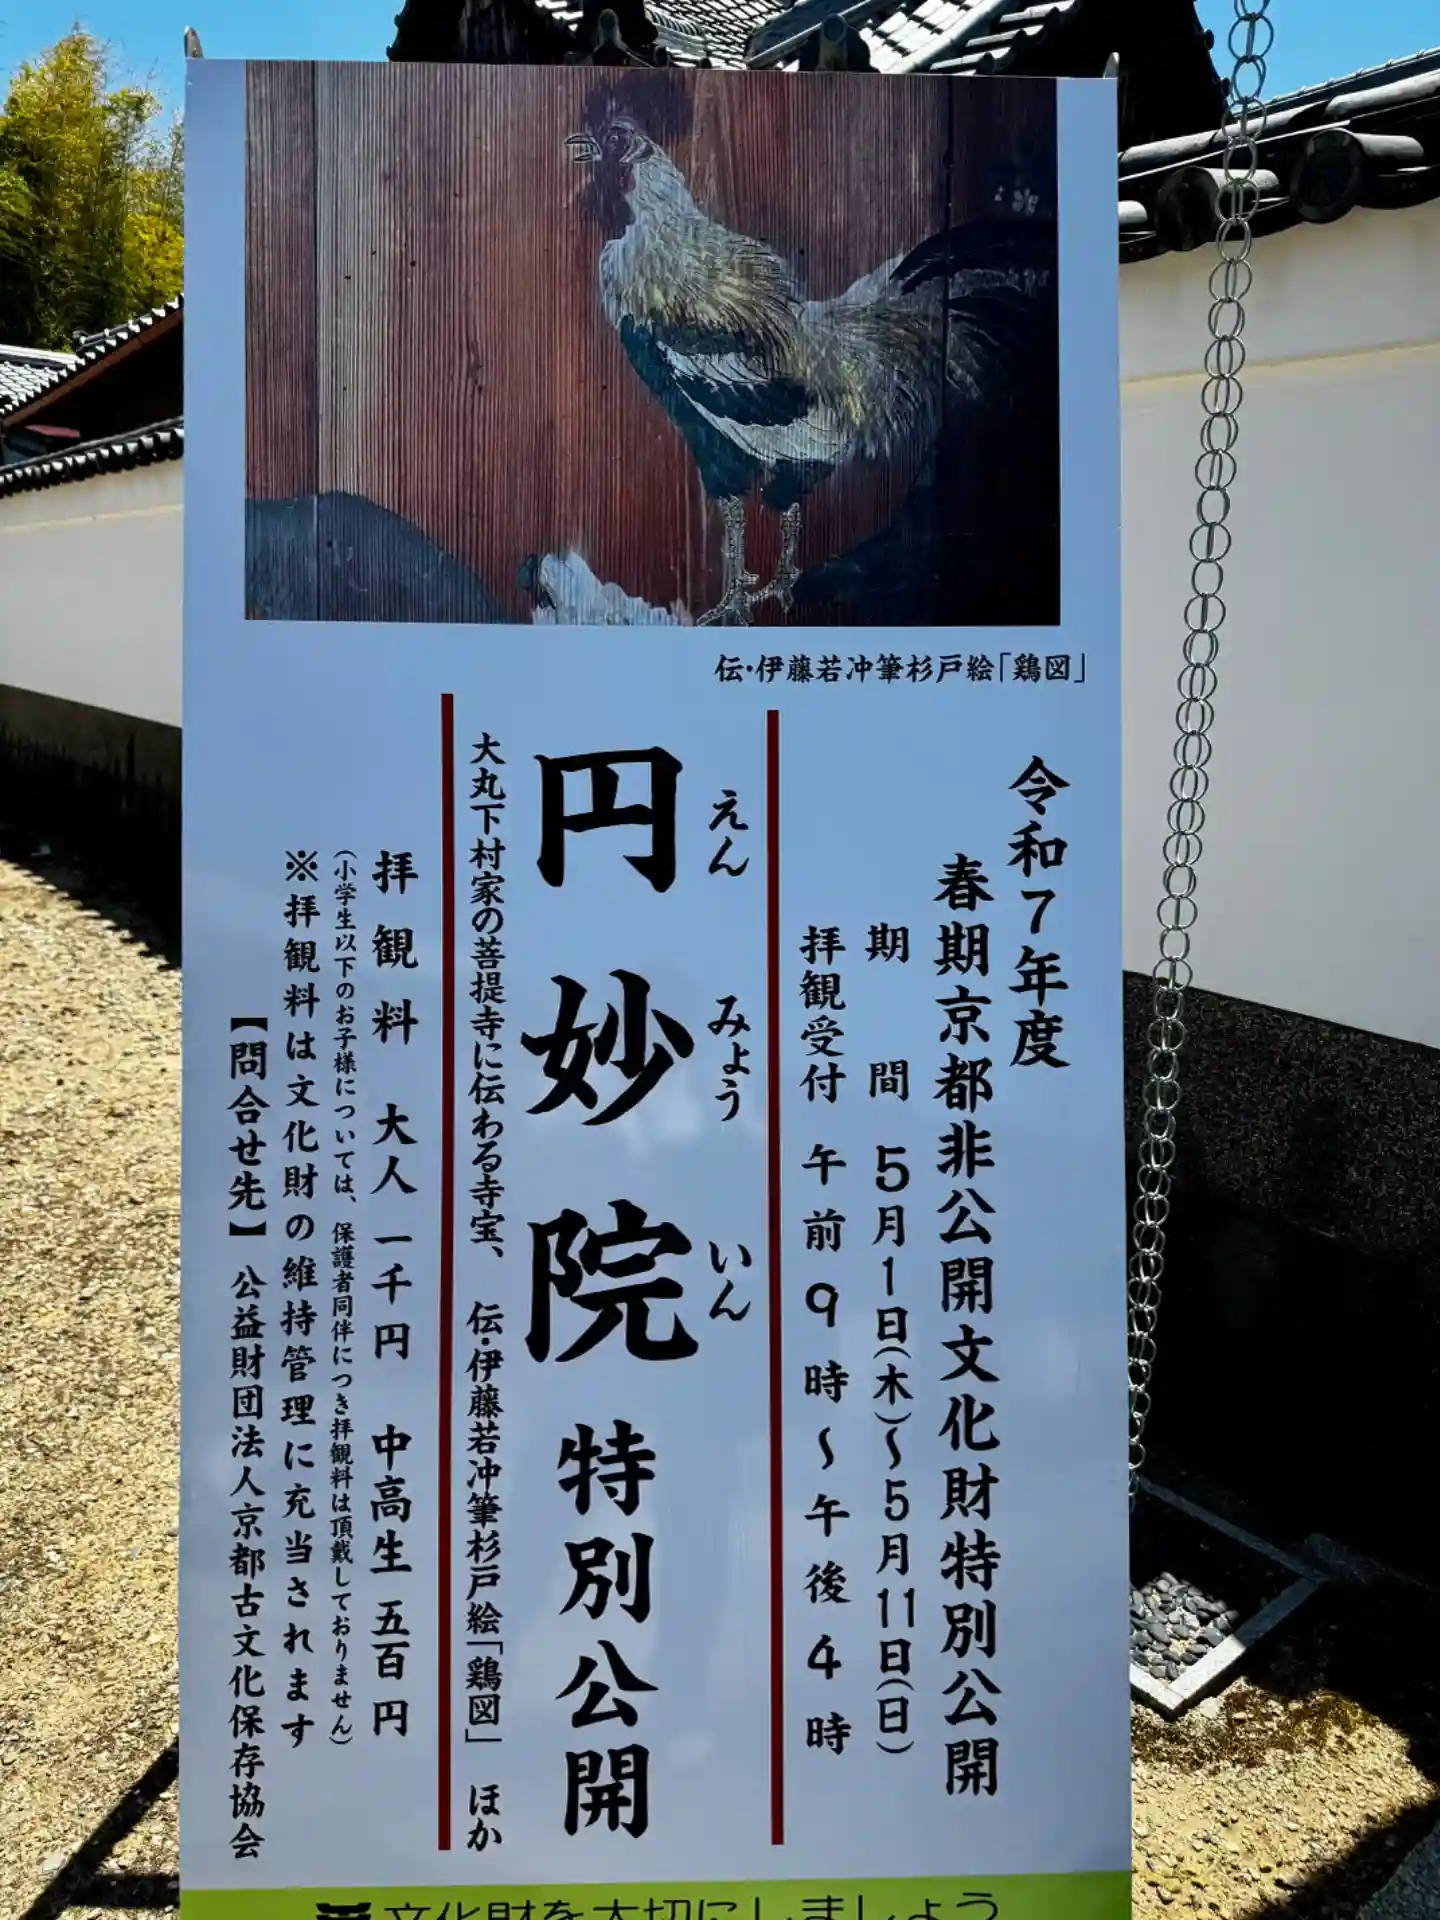 伝・伊藤若冲筆杉戸絵「鶏図」
令和7年度
春期京都非公開文化財特別公開
期間 5月1日(木)～5月11日(日)
拝観受付 午前9時～午後4時
えん みょう いん
円妙院 特別公開
大丸下村家の菩提寺に伝わる寺宝、伝・伊藤若冲筆杉戸絵「鶏図」 ほか
拝観料 大人 一千円 中高生 五百円
(小学生以下のお子様については、保護者同伴につき拝観料は頂戴しておりません)
※拝観料は文化財の維持管理に充当されます
【問合せ先】 公益財団法人京都古文化保存協会
文化財を大切にしましょう